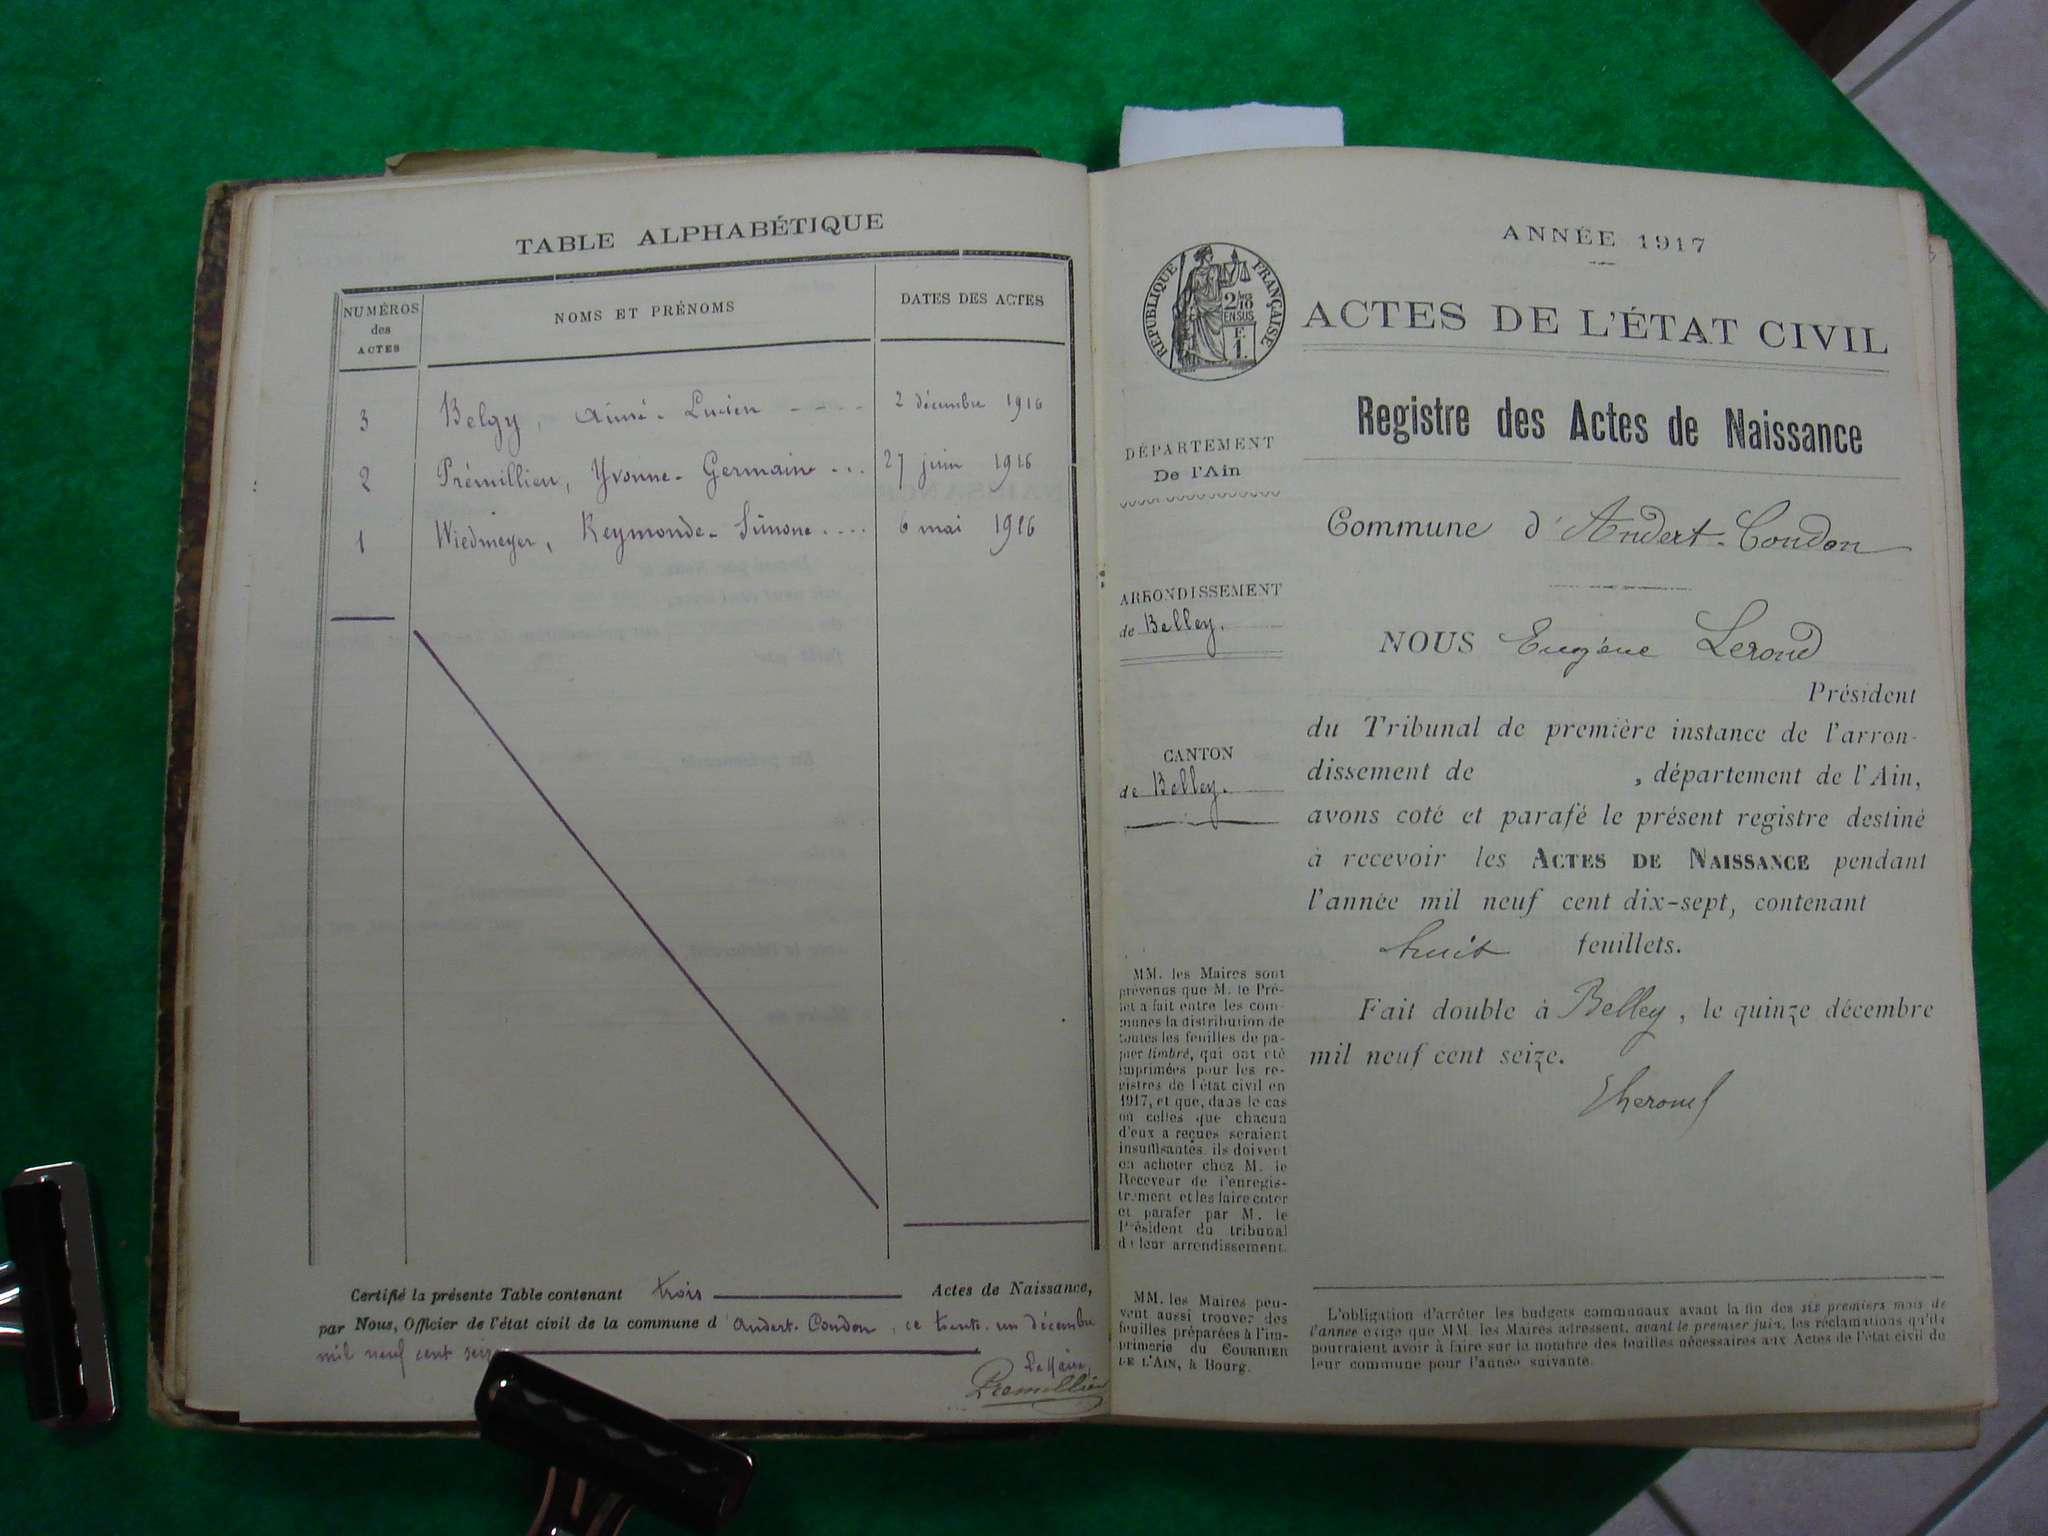 TABLE ALPHABÉTIQUE
NUMÉROS
des
ACTES
NOMS ET PRÉNOMS
DATES DES ACTES
3 Belgy, Aimé-Lucien 2 décembre 1916
2 Prémillieu, Yvonne-Germaine 27 juin 1916
1 Wiedmeyer, Reymonde-Simone 6 mai 1916
Certifié la présente Table contenant trois Actes de Naissance,
par Nous, Officier de l'état civil de la commune d'Andert-Condon, ce trente-un décembre
mil neuf cent seize
Le Maire,
Premillieu
ANNÉE 1917
RÉPUBLIQUE FRANÇAISE
2/10
EN SUS
F.
1.
ACTES DE L'ÉTAT CIVIL
Registre des Actes de Naissance
DÉPARTEMENT
De l'Ain
Commune d'Andert-Condon
ARRONDISSEMENT
de Belley.
CANTON
de Belley.
NOUS Eugène Lerond
Président
du Tribunal de première instance de l'arron-
dissement de , département de l'Ain,
avons coté et parafé le présent registre destiné
à recevoir les ACTES DE NAISSANCE pendant
l'année mil neuf cent dix-sept, contenant
huit feuillets.
Fait double à Belley, le quinze décembre
mil neuf cent seize.
MM. les Maires sont
prévenus que M. le Pré-
fet a fait entre les com-
munes la distribution de
toutes les feuilles de pa-
pier timbré, qui ont été
imprimées pour les re-
gistres de l'état civil en
1917, et que, dans le cas
où celles que chacun
d'eux a reçues seraient
insuffisantes, ils doivent
en acheter chez M. le
Receveur de l'enregis-
trement et les faire coter
et parafer par M. le
Président du tribunal
de leur arrondissement.
MM. les Maires peu-
vent aussi trouver des
feuilles préparées à l'im-
primerie du COURRIER
DE L'AIN, à Bourg.
L'obligation d'arrêter les budgets communaux avant la fin des six premiers mois de
l'année exige que MM. les Maires adressent, avant le premier juin, les réclamations qu'ils
pourraient avoir à faire sur la nombre des feuilles nécessaires aux Actes de l'état civil de
leur commune pour l'année suivante.